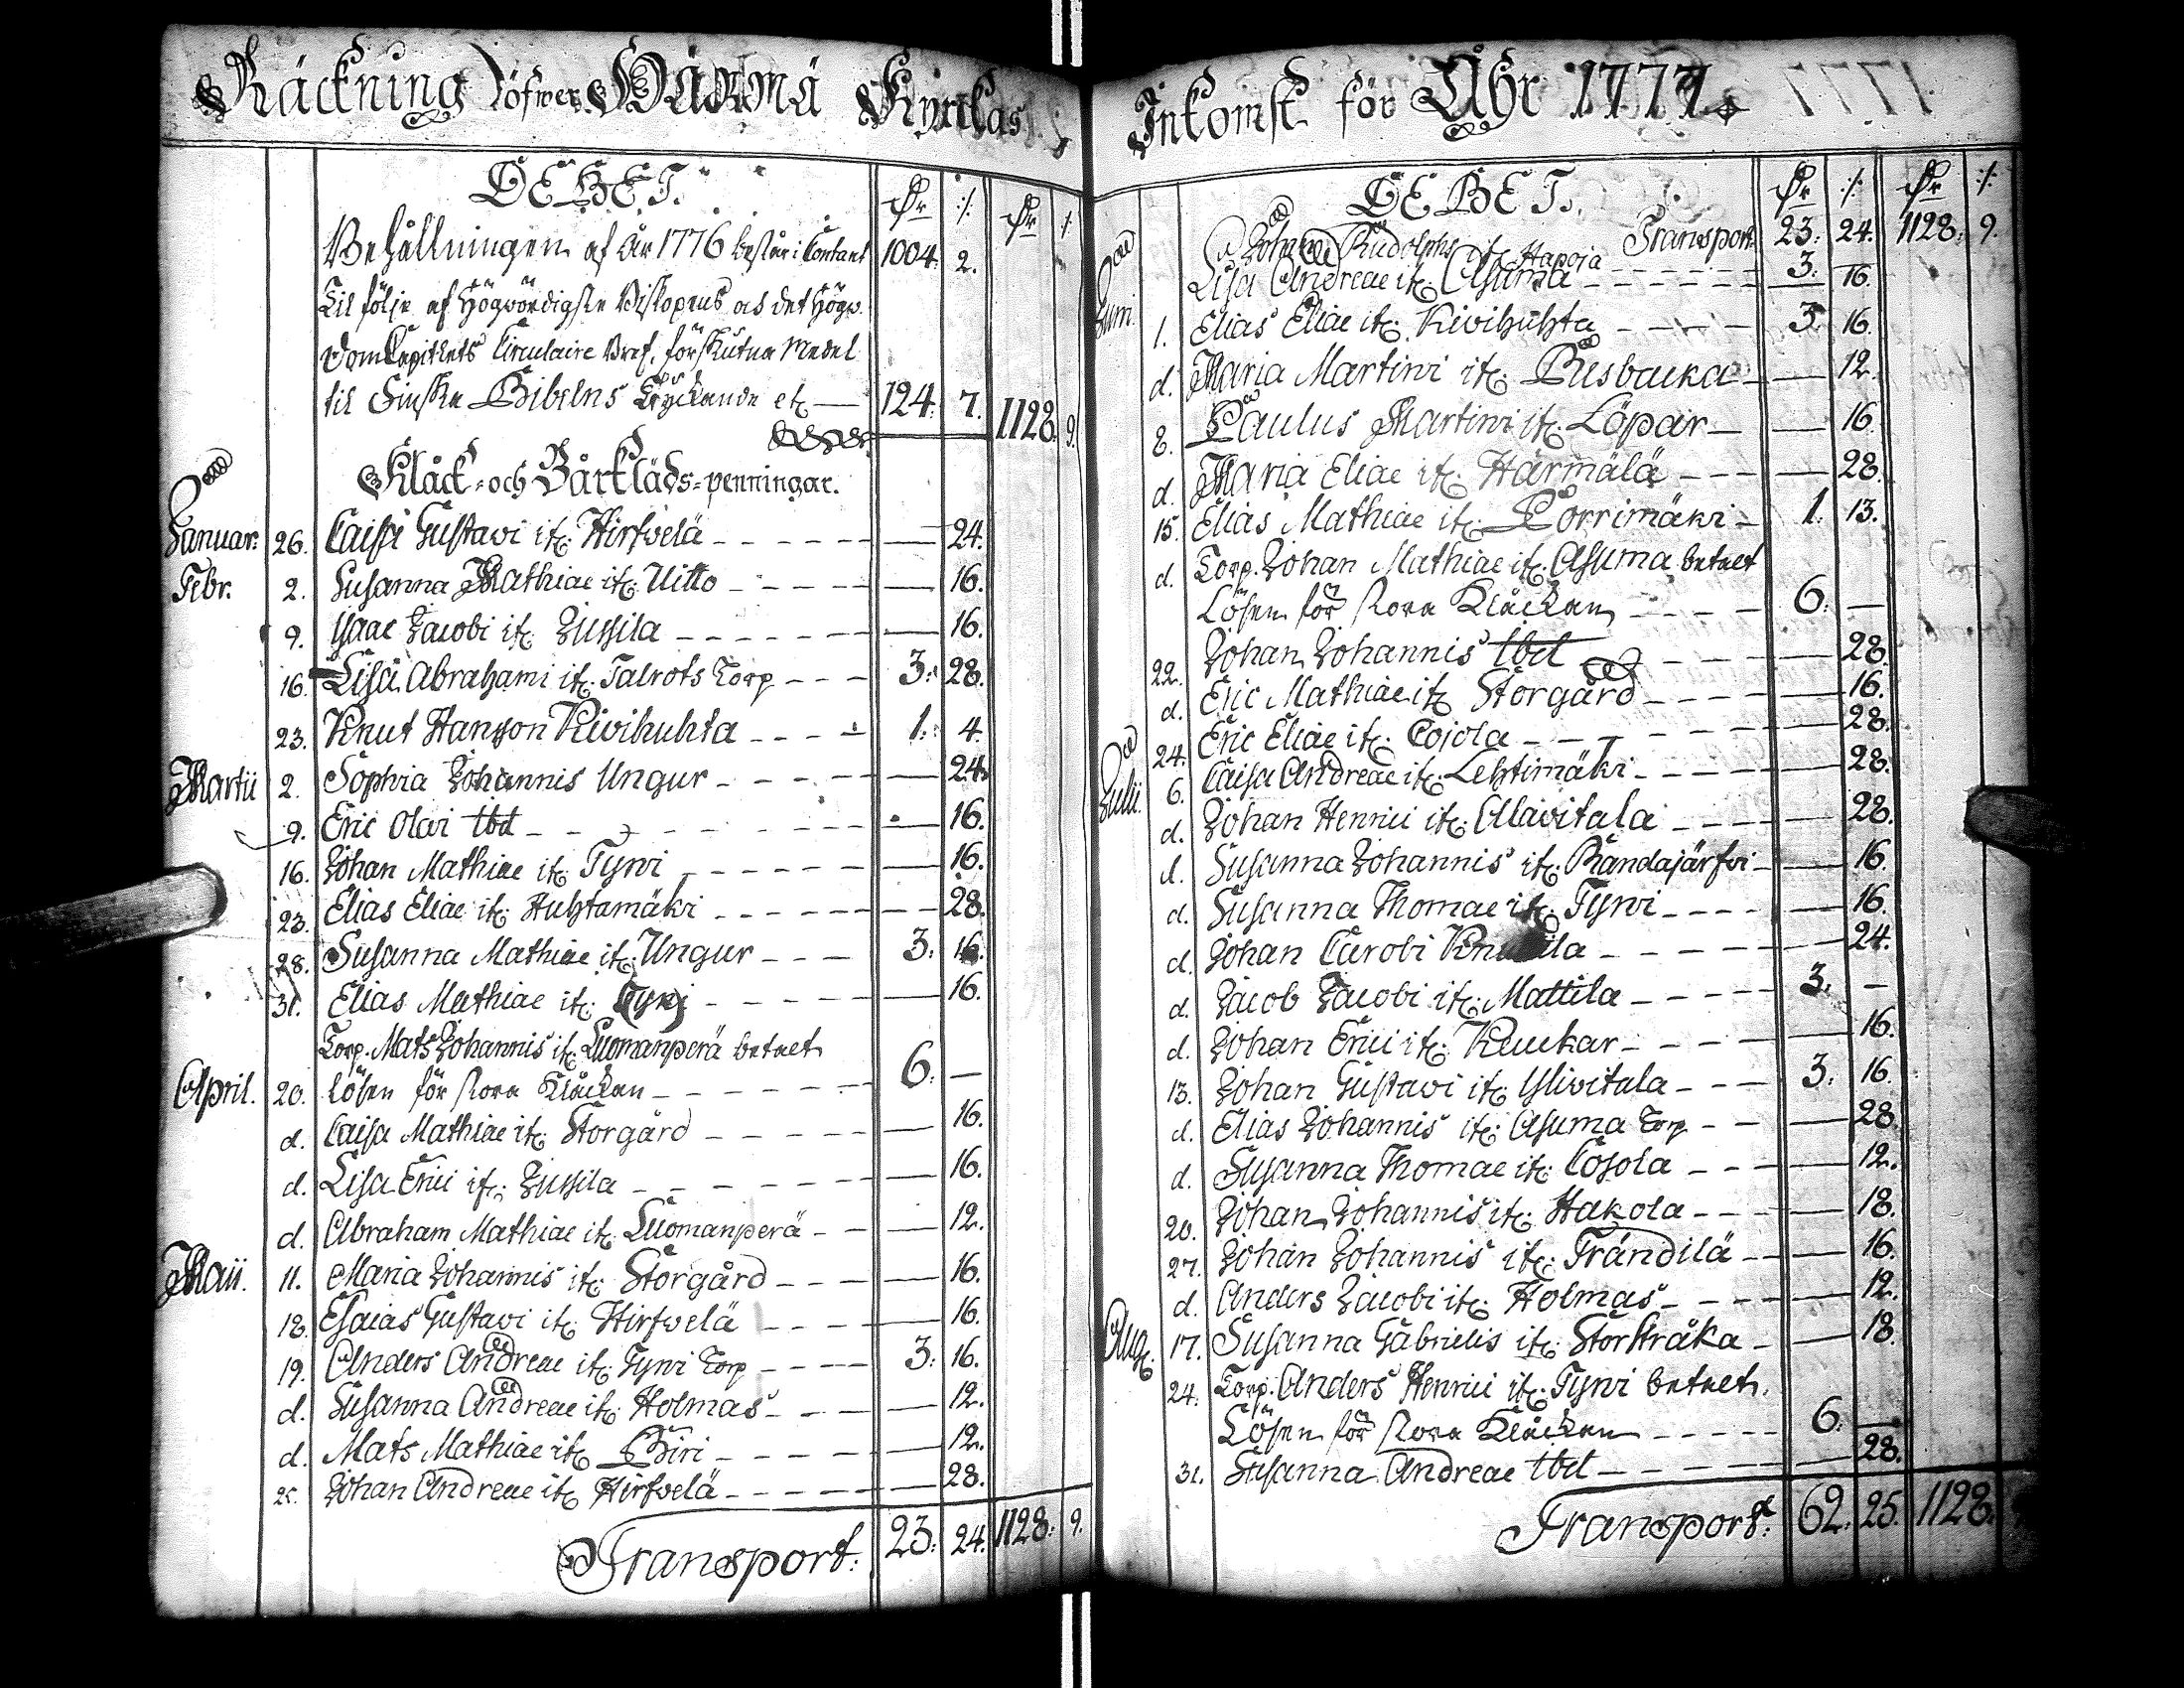 Räckning öfwer Härmä Kyrckas
DEBET. Dr /. Dr /.
Behållningen af år 1776 består i Contant 1004. 2.
Til följe af Högwördigste Biskopens och det Högw.
DomCapitlets Circulaire Bref, förskutne Medel
til Finska Bibelns Tryckande etc — 124. 7. 1128. 9.
Klåck- och Bårkläds-penningar.
Januar. 26. Caisa Gustavi itc. Hirfvelä — 24.
Febr. 2. Susanna Mathiae itc. Uitto — 16.
9. Isaac Jacobi itc. Jussila — 16.
16. Lisa Abrahami itc. Talrots Torp 3. 28.
23. Knut Hansson Kivihuhta 1. 4.
Martii 2. Sophia Johannis Ungur — 24.
9. Eric Olavi tbd — 16.
16. Johan Mathiae itc. Tyrvi — 16.
23. Elias Eliae itc. Huhtamäki — 28.
28. Susanna Mathiae itc. Ungur 3. 16.
31. Elias Mathiae itc. Tyrvi — 16.
Torp. Mats Johannis itc. Luomanperä betalt
April. 20. lösen för stora Klåckan 6. —
d. Caisa Mathiae itc. Storgård — 16.
d. Lisa Erici itc. Jussila — 16.
d. Abraham Mathiae itc. Luomanperä — 12.
Maii. 11. Maria Johannis itc. Storgård — 16.
18. Esaias Gustavi itc. Hirfvelä — 16.
19. Anders Andreae itc. Tyrvi Torp 3. 16.
d. Susanna Andreae itc. Holmas — 12.
d. Mats Mathiae itc. Biri — 12.
25. Johan Andreae itc. Hirfvelä — 28.
Transport. 23. 24. 1128. 9.
Inkomst för Åhr 1777.
DEBET. Dr /. Dr /.
Transport 23. 24. 1128. 9.
Johan Rudolphi itc. Hapoja
Lisa Andreae itc. Asuma 3. 16.
Juni. 1. Elias Eliae itc. Kivihuhta 3. 16.
d. Maria Martini itc. Busbacka — 12.
8. Paulus Martini itc. Löpar — 16.
d. Maria Eliae itc. Härmälä — 28.
15. Elias Mathiae itc. Porrimäki 1. 13.
d. Torp. Johan Mathiae itc. Asuma betalt
Lösen för stora Klåckan 6. —
22. Johan Johannis tbd — 28.
d. Eric Mathiae itc. Storgård — 16.
24. Eric Eliae itc. Cojola — 28.
Julii. 6. Caisa Andreae itc. Lehtimäki — 28.
d. Johan Henrici itc. Alavitala — 28.
d. Susanna Johannis itc. Kändajärfvi — 16.
d. Susanna Thomae itc. Tyrvi — 16.
d. Johan Carobi — 24.
d. Jacob Jacobi itc. Mattila 3. —
d. Johan Erici itc. Kuckar — 16.
13. Johan Gustavi itc. Ylivitala 3. 16.
d. Elias Johannis itc. Asuma Torp — 28.
d. Susanna Thomae itc. Cojola — 12.
20. Johan Johannis itc. Hakola — 18.
27. Johan Johannis itc. Frändilä — 16.
d. Anders Jacobi itc. Holmas — 12.
Aug. 17. Susanna Gabrielis itc. Storstråka — 18.
24. Torp. Anders Henrici itc. Tyrvi betalt
Lösen för stora Klåckan 6. —
31. Susanna Andreae tbd — 28.
Transport. 62. 25. 1128.